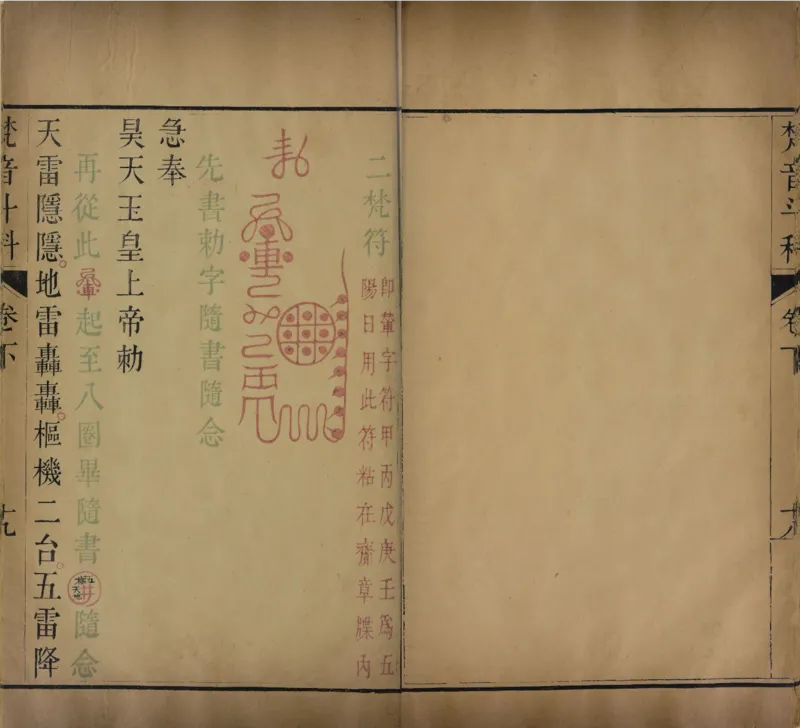 梵音斗科 卷下
二梵符
即字符甲丙戊庚壬為五
陽日用此符粘在齋章牒內
先書勅字隨書隨念
急奉
昊天玉皇上帝勅
再從此起至八圈畢隨書隨念
天雷隱隱。地雷轟轟。樞機二台。五雷降
梵音斗科 卷下